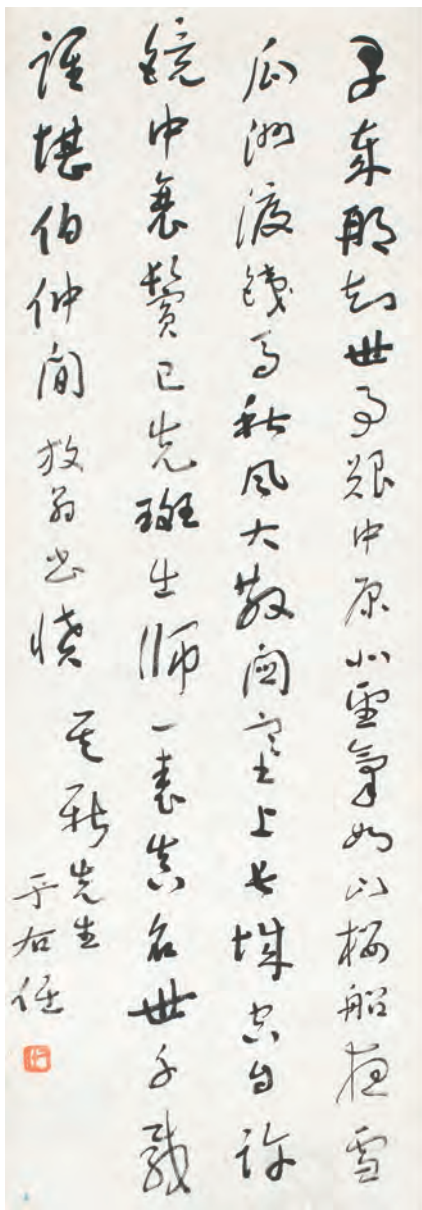 早歲那知世事艱中原北望氣如山樓船夜雪
瓜洲渡鐵馬秋風大散關塞上長城空自許
鏡中衰鬢已先斑出師一表真名世千載
誰堪伯仲間 放翁書憤
其新先生
于右任